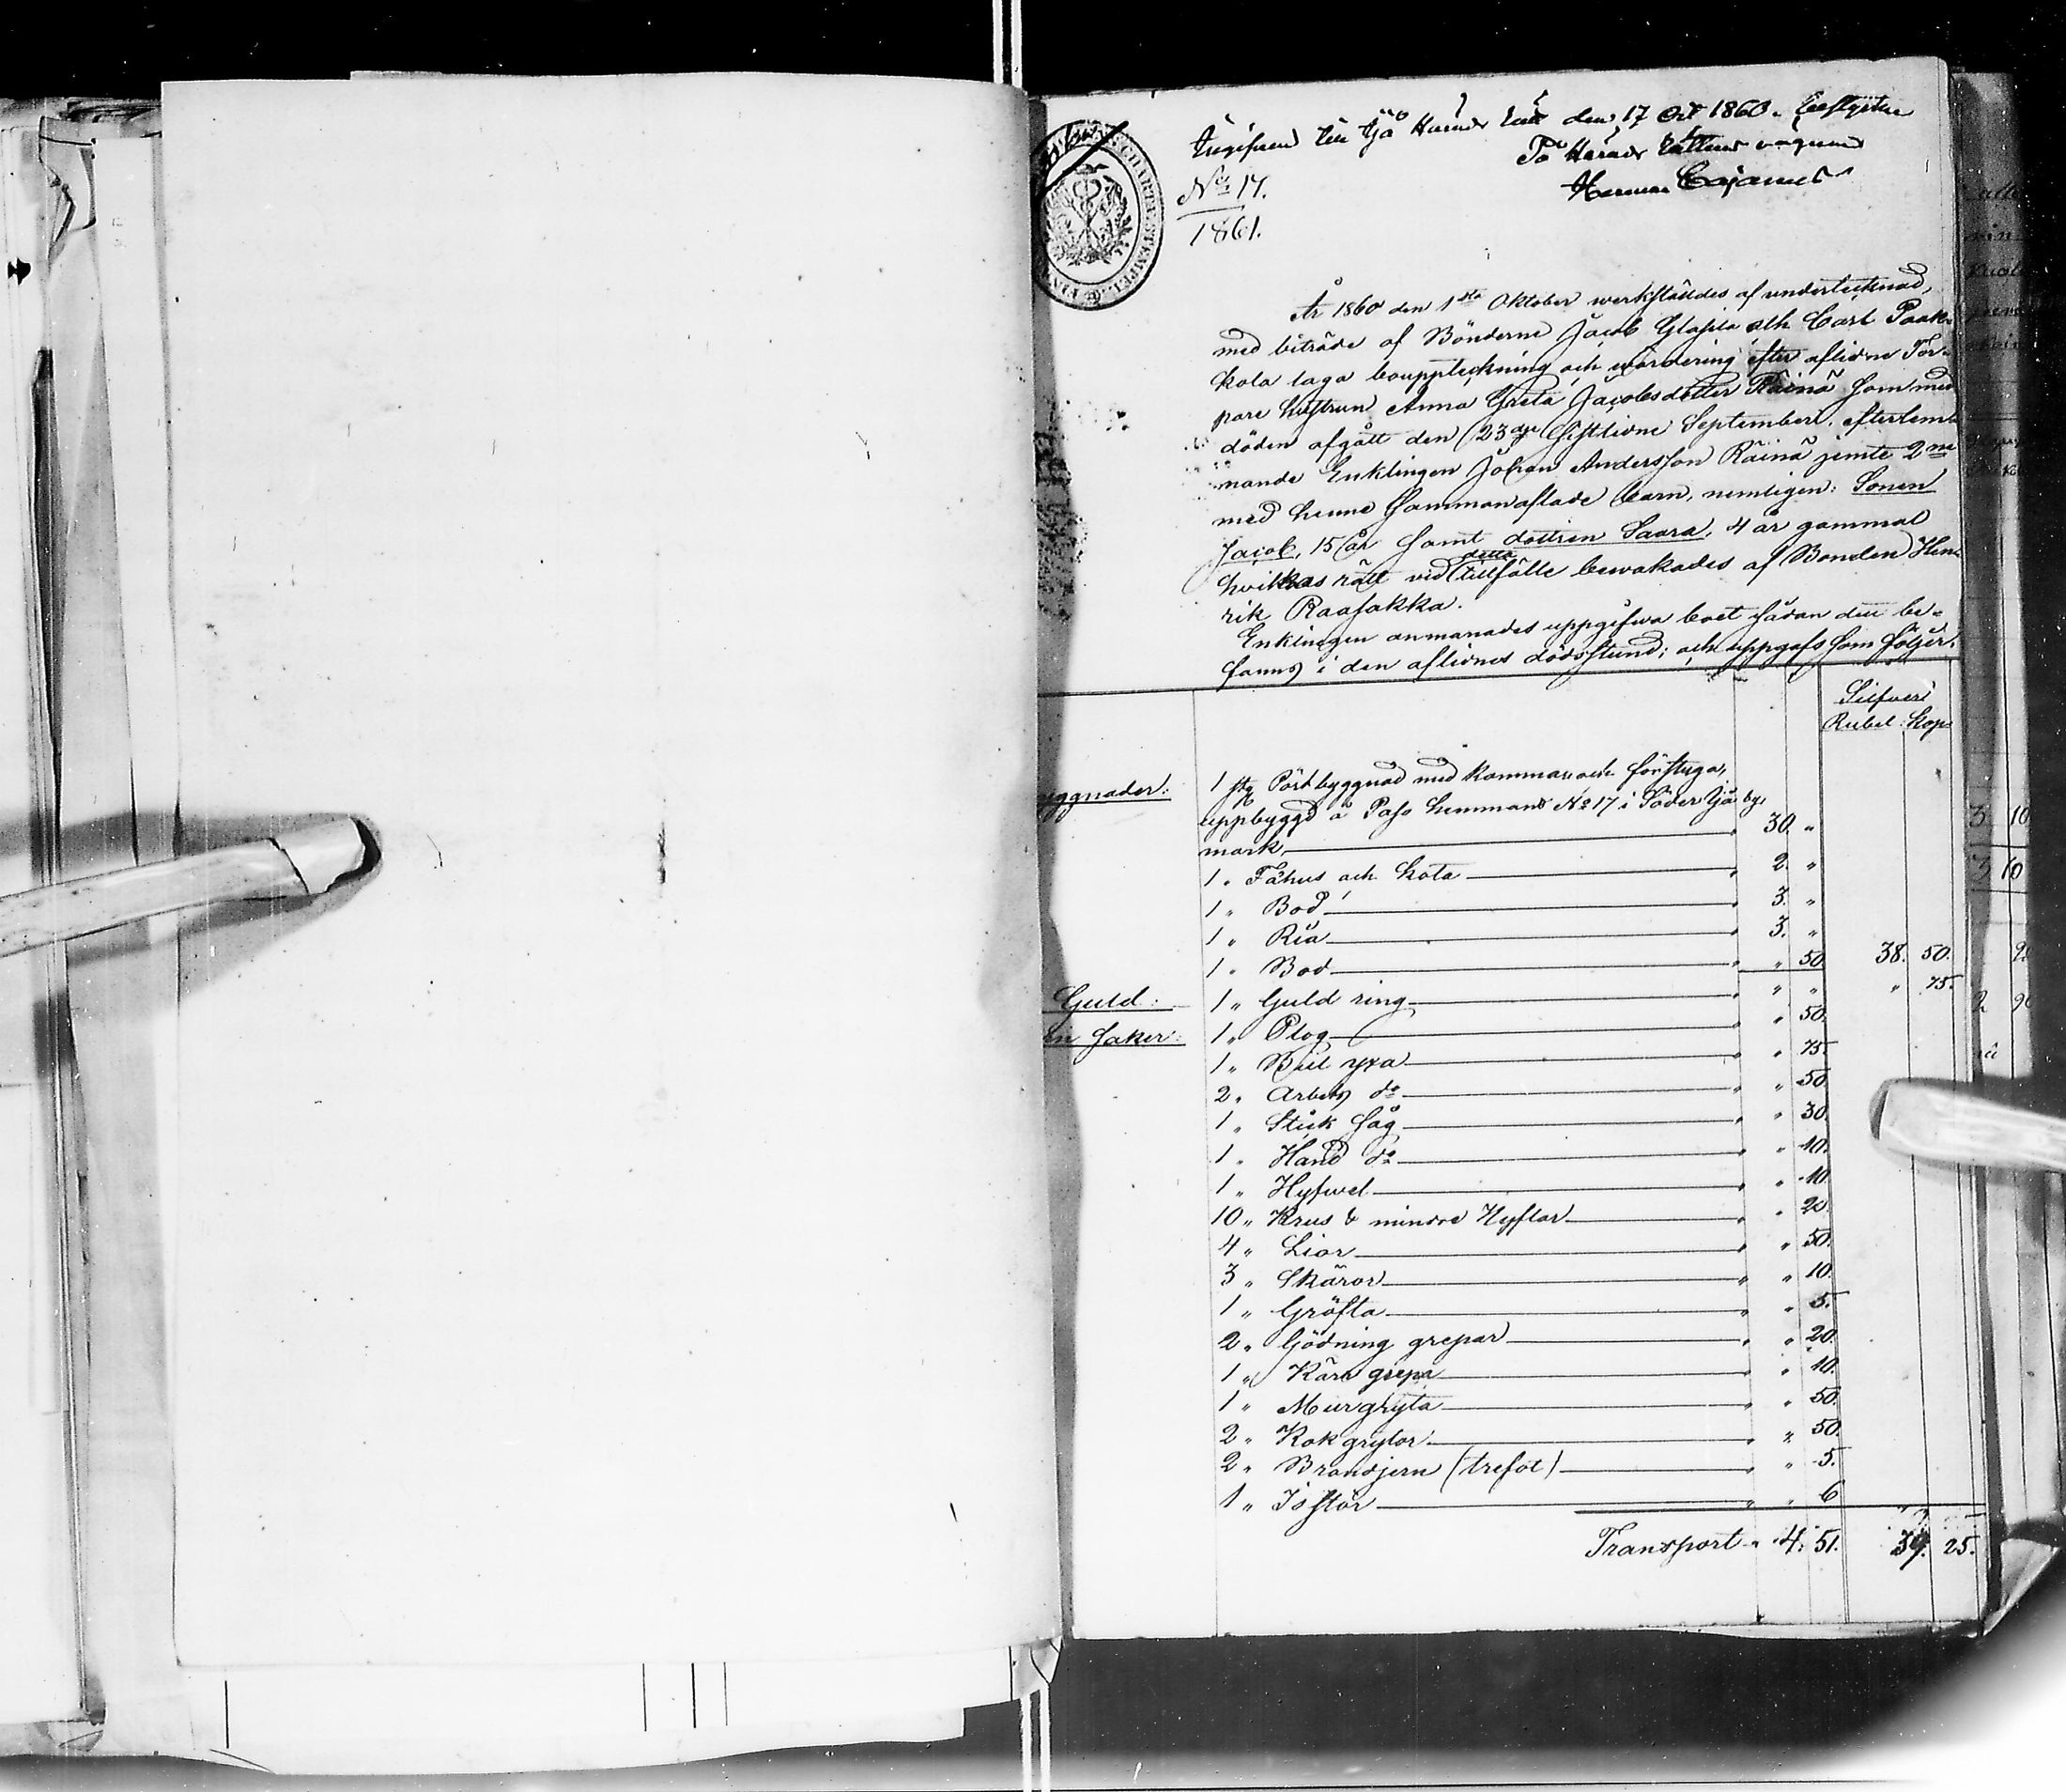 Ingifven till Ijo Härads Rätt den 17 Oct 1860. betygar
På Härads Rättens vägnar
Herman Cajanus
No 17.
1861.
År 1860 den 1sta Oktober werkställdes af undertecknad,
med biträde af Bönderne Jacob Ylafila och Carl Paak-
kola laga bouppteckning och wärdering efter aflidne Tor-
pare hustrun Anna Greta Jacobsdotter Räinä som med
döden afgått den 23dje sistlidne September. efterlem-
nande Enklingen Johan Andersson Räinä jemte 2ne
med henne sammanaflade barn, nemligen: Sonen
Jacob, 15 år samt dottren Saara, 4 år gammal
hvilkas rätt vid detta tillfälle bevakades af Bonden Hen-
rik Raasakka.
Enklingen anmanades uppgifwa boet sådan det be-
fanns i den aflidnes dödsstund; och uppgafs som följer:
Silfver
Rubel. Kop.
yggnader: 1 st Pörtbyggnad med kammar och förstuga,
uppbyggd å Paso hemmans No 17 i Söder Ijo by,
mark, 30. "
1 " Fähus och kota " 2. "
1 " Bod " 3. "
1 " Ria " 3. "
1 " Bod " " 50. 38. 50.
Guld: 1 " Guld ring " " " " 75.
rn saker: 1 " Plog " " 50.
1 " Bil yxa " " 75.
2 " Arbets do " " 50.
1 " Stick såg " " 30.
1 " Hand do " " 10.
1 " Hyfvel " " 10.
10 " Krus & mindre Hyflar " " 20
4 " Liar " " 50.
3 " Skäror " " 10.
1 " Gröfta " " 5.
2 " Gödning grepar " " 20.
1 " Kärn grepa " " 10.
1 " Murgryta " " 50.
2 " Kokgrytor " " 50.
2 " Brandjern (trefot) " " 5.
1 " Isstör " " 6
Transport " 4. 51. 39. 25.